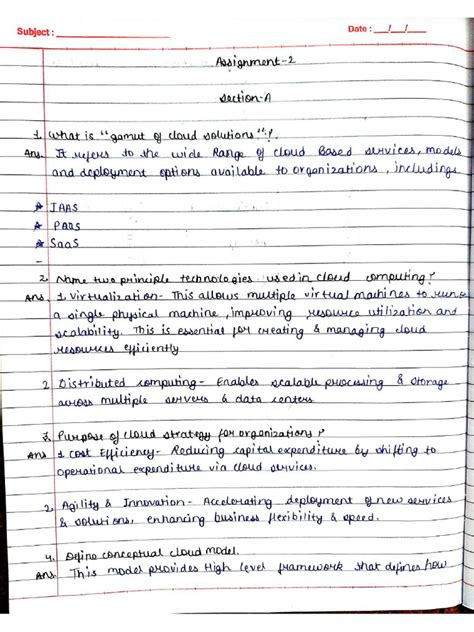 Subject :
Date : __/__/__
Assignment-2
Section-A
1. What is "gamut of cloud solutions"?
Ans. It refers to the wide Range of cloud Based services, models
and deployment options available to organizations, including
☆ IAAS
☆ PAAS
☆ SaaS
2. Name two principle technologies used in cloud computing?
Ans. 1. Virtualization- This allows multiple virtual machines to run on
a single physical machine, improving resource utilization and
scalability. This is essential for creating & managing cloud
resources efficiently
2. Distributed computing- Enables scalable processing & storage
across multiple servers & data centers
3. Purpose of cloud strategy for organizations?
Ans 1 cost Efficiency- Reducing capital expenditure by shifting to
operational expenditure via cloud services.
2. Agility & Innovation- Accelerating deployment of new services
& solutions, enhancing business flexibility & speed.
4. Define conceptual cloud model.
Ans. This model provides High level framework that defines how